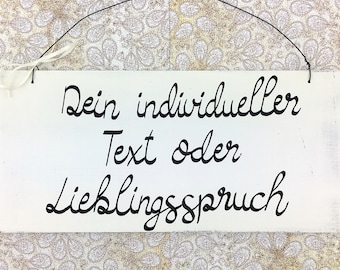 Dein individueller
Text oder
Lieblingsspruch